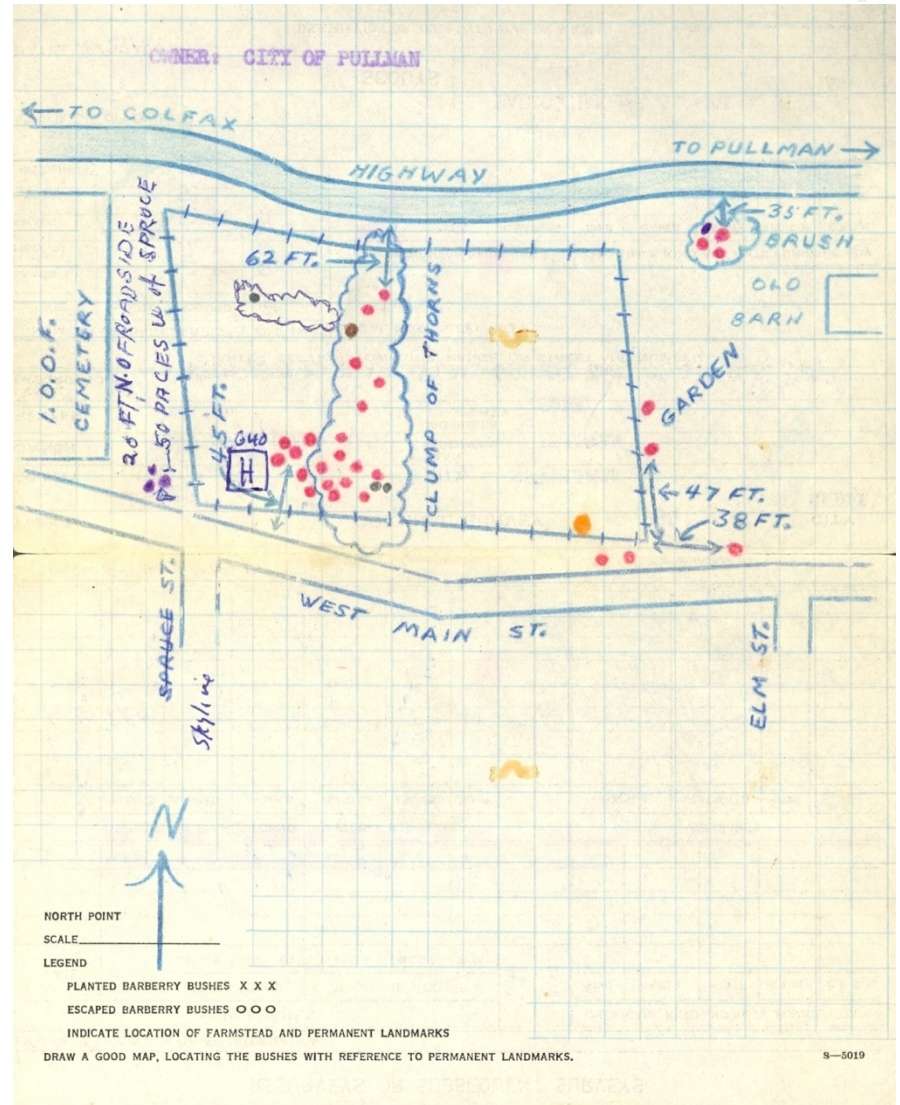 OWNER: CITY OF PULLMAN
← TO COLFAX
HIGHWAY
TO PULLMAN →
35 FT.
BRUSH
OLD
BARN
62 FT.
I.O.O.F.
CEMETERY
20 FT N. OF ROADSIDE
50 PACES W of SPRUCE
45 FT.
640
H
CLUMP OF THORNS
GARDEN
47 FT.
38 FT.
WEST MAIN ST.
SPRUCE ST.
Skyline
ELM ST.
N
NORTH POINT
SCALE
LEGEND
PLANTED BARBERRY BUSHES X X X
ESCAPED BARBERRY BUSHES O O O
INDICATE LOCATION OF FARMSTEAD AND PERMANENT LANDMARKS
DRAW A GOOD MAP, LOCATING THE BUSHES WITH REFERENCE TO PERMANENT LANDMARKS.
S—5019